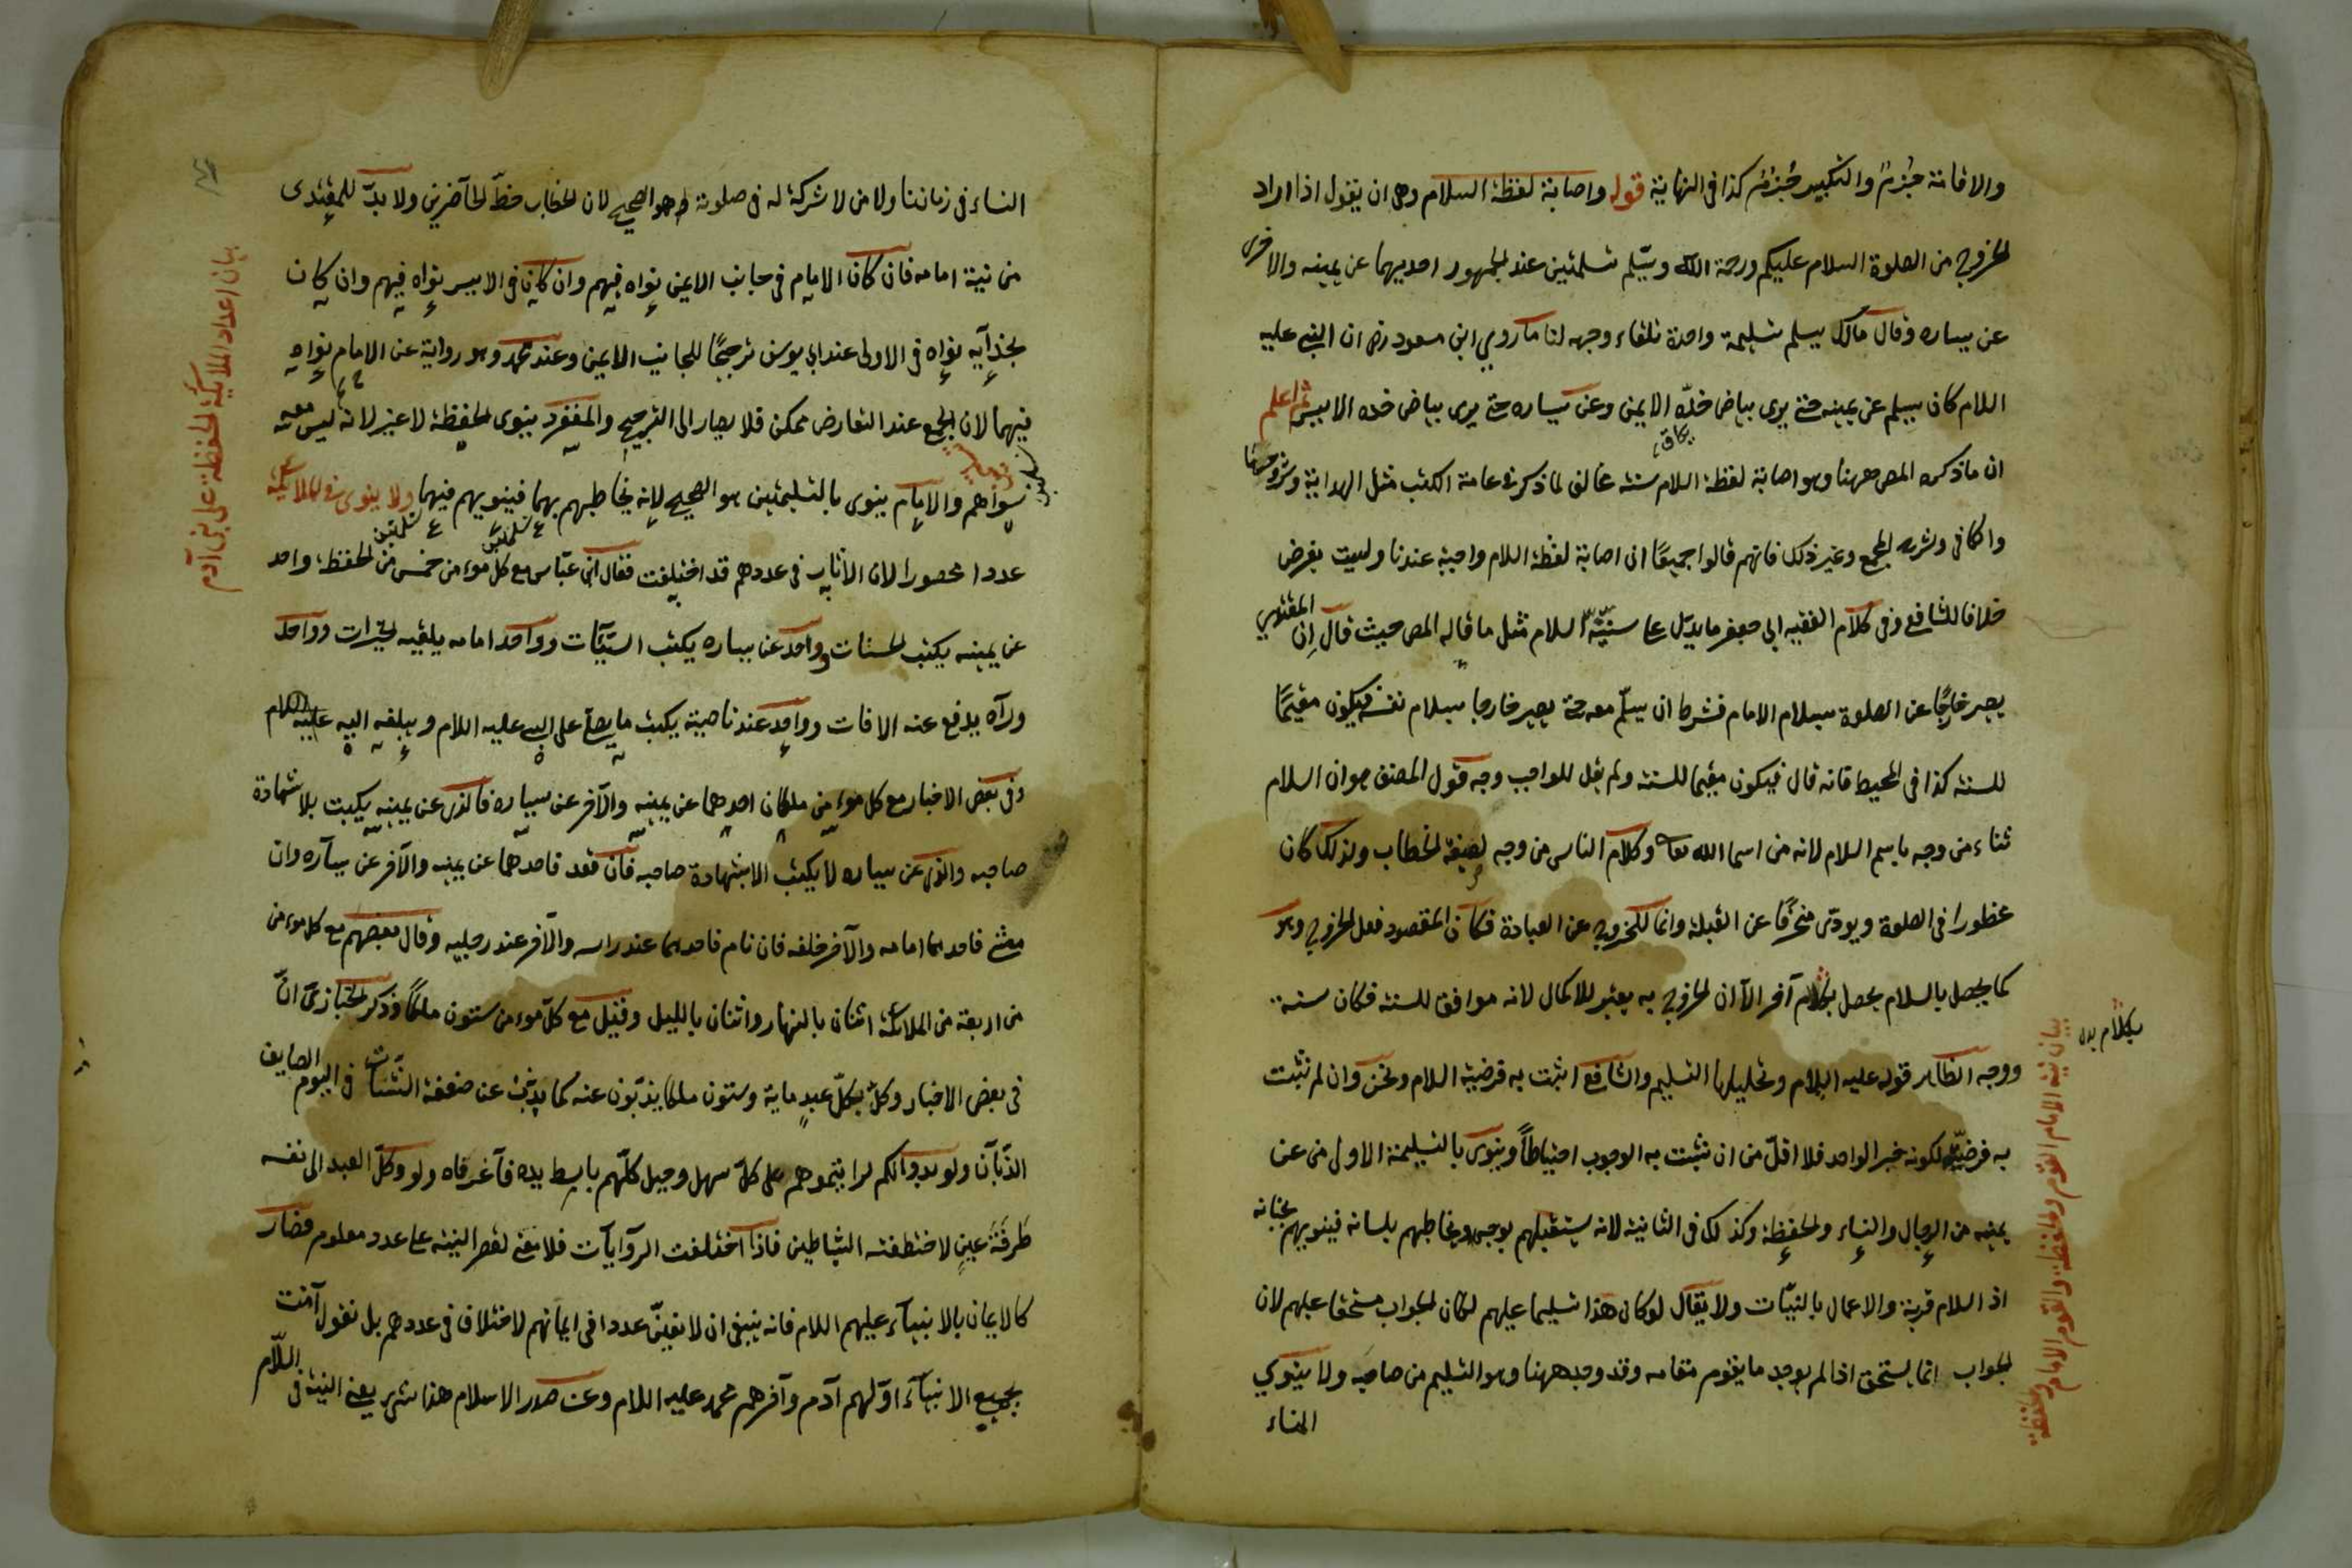 والاقامة جزم والتكبير جزم كذا في النهاية قوله واصابة لفظة السلام وهى ان يقول اذا اراد
الخروج من الصلوة السلام عليكم ورحمة الله ويسلم تسلمتين عند الجمهور احديهما عن يمينه والاخرى
عن يساره وقال مالك يسلم تسليمة واحدة تلقاء وجهه لنا ما روي ابن مسعود رض ان النبي عليه
السلام كان يسلم عن يمينه حتى يرى بياض خدّه الايمن وعن يساره حتى يرى بياض خده الايسر ثم اعلم
ان ما ذكره المص ههنا وهو اصابة لفظة السلام سنة مخالف لما ذكر في عامة الكتب مثل الهداية وشروحها
والكافى وشرح المجمع وغير ذلك فانهم قالوا جميعًا ان اصابة لفظة السلام واجبة عندنا وليست بفرض
خلافا للشافع وفى كلام الفقيه ابى جعفر ما يدل على سنيّة السلام مثل ما قاله المص حيث قال اِن المقتدي
يصير خارجًا عن الصلوة بسلام الامام فشرط ان يسلّم معه حتى يصير خارجا بسلام نفسه فيكون مقيمًا
للسنة كذا فى المحيط فانه قال فيكون مقيما للسنة ولم يقل للواجب وجه قول المصنف هو ان السلام
ثناء من وجه باسم السلام لانه من اسما الله تعالى وكلام الناس من وجه لصيغة الخطاب ولذلك كان
محظورا فى الصلوة ويودّى منحرفًا عن القبلة وانما للخروج عن العبادة فكان المقصود فعل الخروج وهو
كما يحصل بالسلام يحصل بكلام آخر الا ان الخروج به يعتبر للاكمال لانه موافق للسنة فكان سنة
ووجه الظاهر قوله عليه السلام وتحليلها التسليم والشافع اثبت به فرضية السلام ونحن وان لم نثبت
به فرضيّة لكونه خبر الواحد فلا اقلّ من ان نثبت به الوجوب احتياطاً وينوى بالتسليمة الاولى من عن
يمينه من الرجال والنساء والحفظة وكذلك فى الثانية لانه يستقبلهم بوجهه ويخاطبهم بلسانه فينويهم بجنانه
اذ السلام قربة والاعمال بالنيّات ولا يقال لو كان هذا تسليما عليهم لكان الجواب مستحقا عليهم لان
الجواب انما يستحق اذا لم يوجد ما يقوم مقامه وقد وجد ههنا وهو التسليم من صاحبه ولا ينوي
النساء
بكلام بدل
بيان نية الامام القوم والحفظة والقوم الامام والحفظة
النساء فى زماننا ولا من لا شركة له فى صلوته هو الصحيح لان الخطاب حظّ الحاضرين ولا بدّ للمقتدى
من نية امامه فان كان الامام فى جانب الايمن نواه فيهم وان كان فى الايسر نواه فيهم وان كان
بحذآيه نواه فى الاولى عند ابى يوسف ترجيحًا للجانب الايمن وعند محمد وهو رواية عن الامام نواه
فيهما لان الجمع عند التعارض ممكن فلا يصار الى الترجيح والمنفرد ينوى الحفظة لا غير لانه ليس معه
سواهم والامام ينوى بالتسليمتين هو الصحيح لانه يخاطبهم بهما فينويهم فيهما ولا ينوى فى الملائكة
عددا محصورا لان الآثار فى عددهم قد اختلفت فقال ابن عبّاس مع كل مومن خمس من الحفظة واحد
عن يمينه يكتب الحسنات وواحد عن يساره يكتب السيّآت وواحد امامه يلقيه الخيرات وواحد
ورآه يدفع عنه الافات وواحد عند ناصيته يكتب ما يصلى على النبي عليه السلام ويبلغه اليه عليه السلام
وفى بعض الاخبار مع كل مومن ملكان احدهما عن يمينه والآخر عن يساره فالذى عن يمينه يكتب بلا شهادة
صاحبه والذى عن يساره لا يكتب الا بشهادة صاحبه فان قعد فاحدهما عن يمينه والآخر عن يساره وان
مشى فاحدهما امامه والآخر خلفه فان نام فاحدهما عند راسه والآخر عند رجليه وقال بعضهم مع كل مومن
من اربعة من الملائكة اثنان بالنهار واثنان بالليل وقيل مع كلّ مومن ستون ملكًا وذكر الخبازى انّ
فى بعض الاخبار وكل بكلّ عبدٍ ماية وستون ملكا يذبّون عنه كما يذبّ عن ضعفة الشاة فى اليوم الصايف
الذّبّان ولو بدوا لكم لرايتموهم على كلّ سهل وجبل كلّهم باسط يده فآغر فاه ولو وكلّ العبد الى نفسه
طرفة عينٍ لاختطفته الشياطين فاذا اختلفت الروآيات فلا معنى لقصر النية على عدد معلوم فصار
كالايمان بالانبيآء عليهم السلام فانه ينبغى ان لا نعيّن عددا فى ايمانهم لاختلاف فى عددهم بل نقول آمنت
بجميع الانبيآء اوّلهم آدم وآخرهم محمد عليه السلام وعن صدر الاسلام هذا شئ يعنى النية فى السلام
بيان اعداد الملائكة الحفظة على بنى آدم